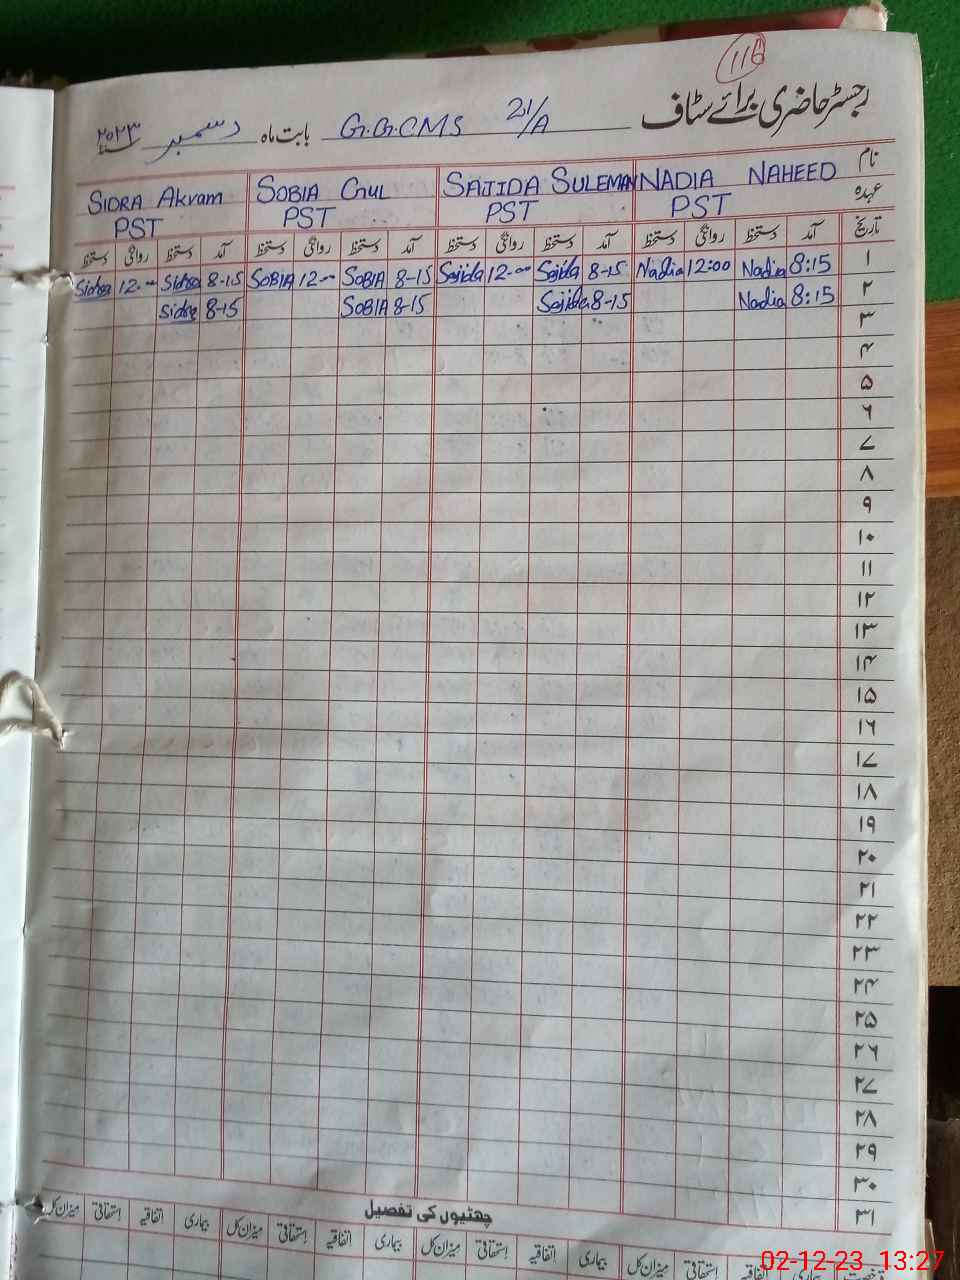 116
رجسٹر حاضری برائے سٹاف G.G.C.M.S 21/A بابت ماہ دسمبر ۲۰۲۳
نام NADIA NAHEED SAJIDA SULEMAN SOBIA GUL SIDRA Akram
عہدہ PST PST PST PST
تاریخ آمد دستخط روانگی دستخط آمد دستخط روانگی دستخط آمد دستخط روانگی دستخط آمد دستخط روانگی دستخط
۱ 8:15 Nadia 12:00 Nadia 8-15 Sajida 12-00 Sajida 8-15 SOBIA 12-00 SOBIA 8-15 Sidra 12-00 Sidra
۲ 8:15 Nadia 8-15 Sajida 8-15 SOBIA 8-15 Sidra
۳
۴
۵
۶
۷
۸
۹
۱۰
۱۱
۱۲
۱۳
۱۴
۱۵
۱۶
۱۷
۱۸
۱۹
۲۰
۲۱
۲۲
۲۳
۲۴
۲۵
۲۶
۲۷
۲۸
۲۹
۳۰
۳۱
چھٹیوں کی تفصیل
بیماری اتفاقیہ استحقاقی میزان کل بیماری اتفاقیہ استحقاقی میزان کل بیماری اتفاقیہ استحقاقی میزان کل بیماری اتفاقیہ استحقاقی میزان کل
02-12-23 13:27